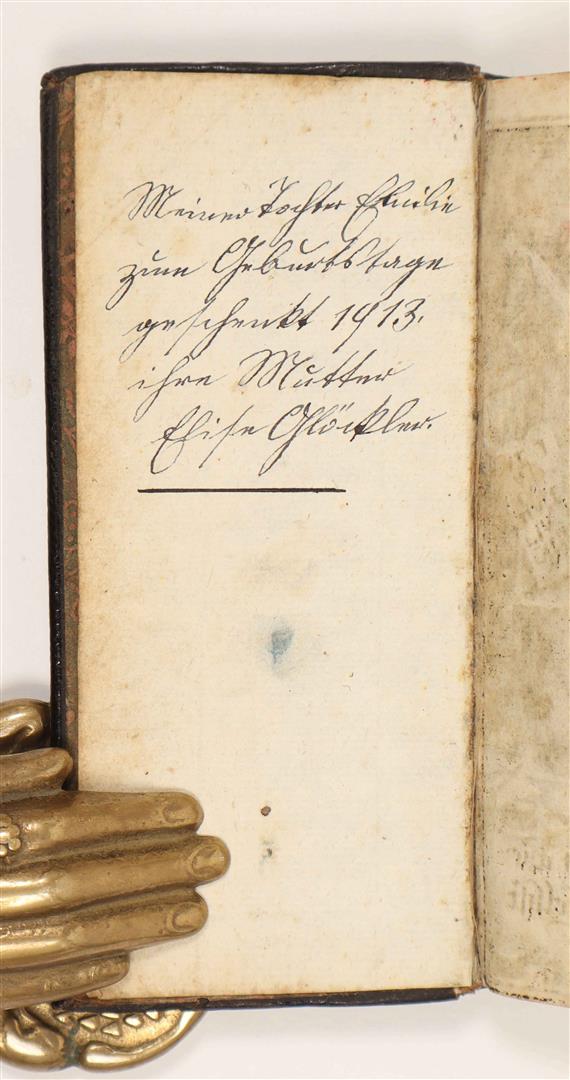 Meiner Tochter Emilie
zum Geburtstage
geschenkt 1913.
ihre Mutter
Elise Glöckler.